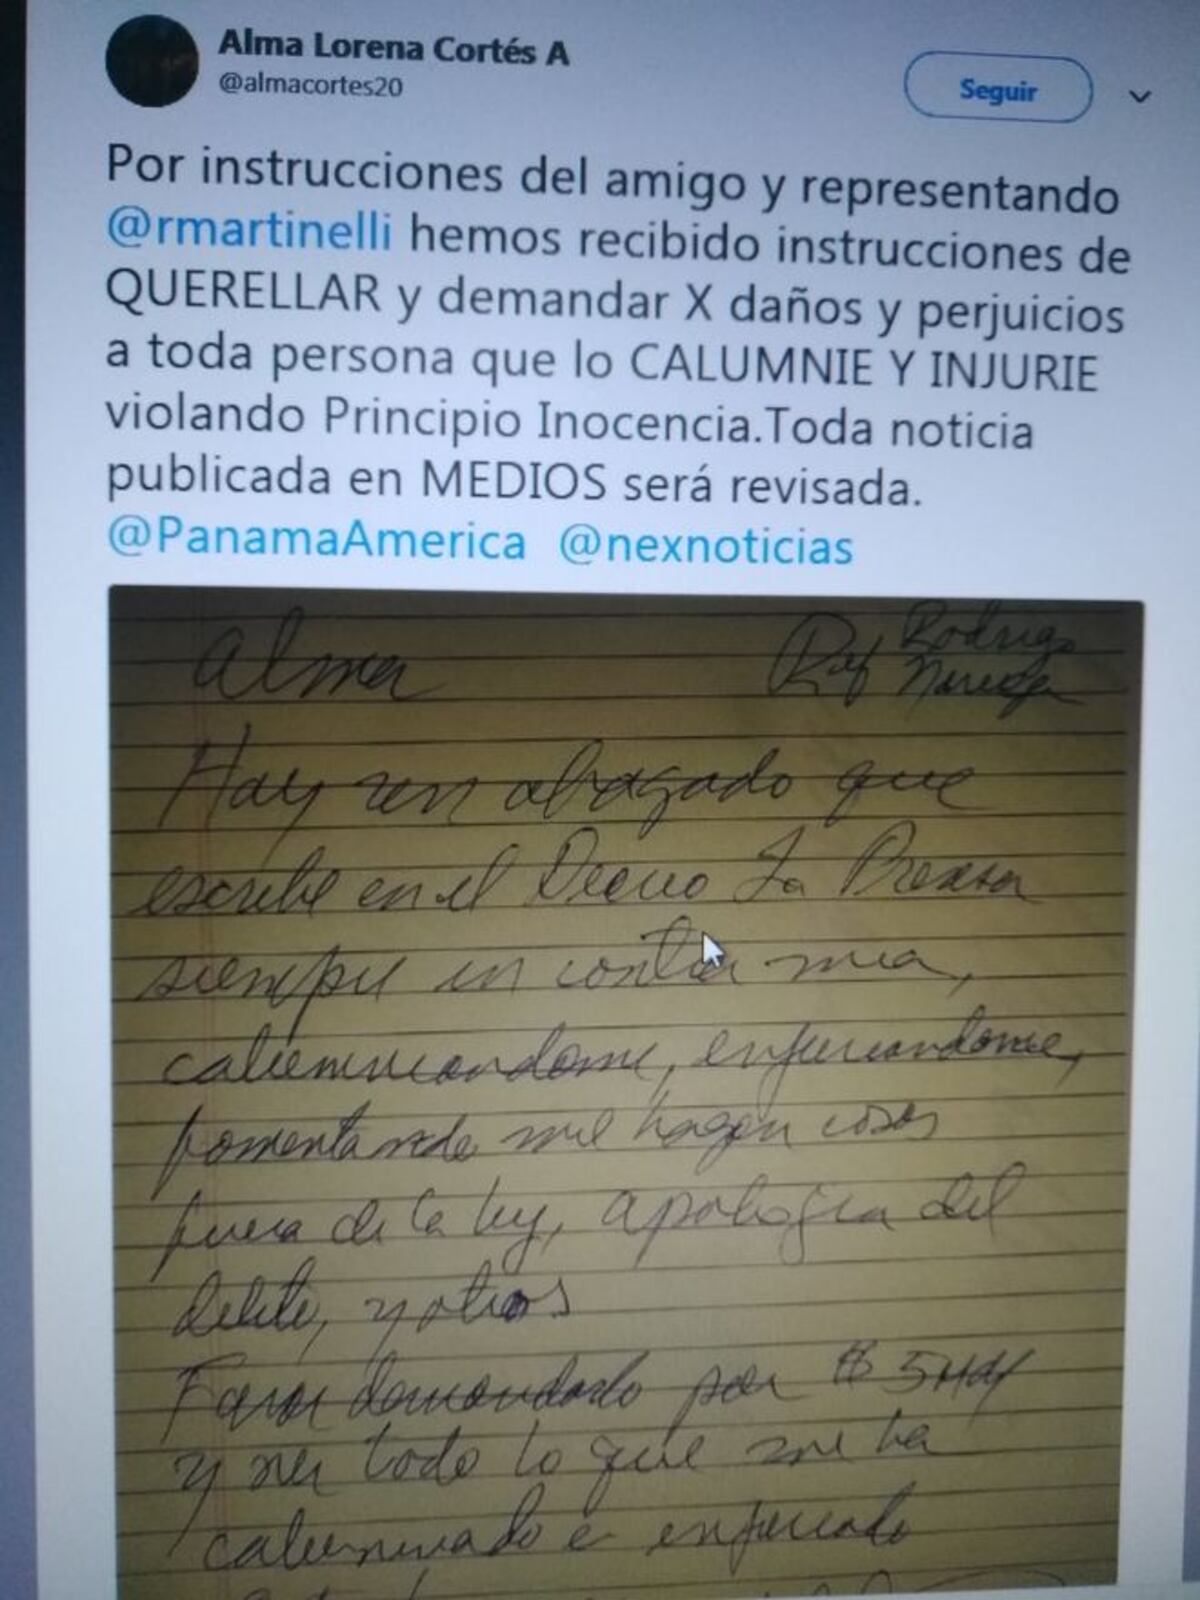 Alma Lorena Cortés A
@almacortes20
Seguir
Por instrucciones del amigo y representando
@rmartinelli hemos recibido instrucciones de
QUERELLAR y demandar X daños y perjuicios
a toda persona que lo CALUMNIE Y INJURIE
violando Principio Inocencia.Toda noticia
publicada en MEDIOS será revisada.
@PanamaAmerica @nexnoticias
Alma
Rodrigo
Ref Noriega
Hay un abogado que
escribe en el Decno La Prensa
siempre en contra mia,
calumniandome, enjuriandome,
fomentando me hagan cosas
fuera de la ley, apologia del
delito, y otros
Favor demandarlo por $
y ver todo lo que me ha
calumniado e enjuriado